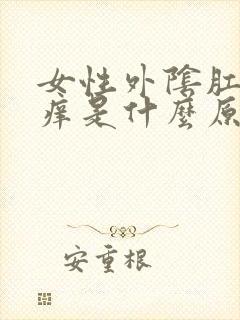 女性外陰肛
痒是什麼原
安重根